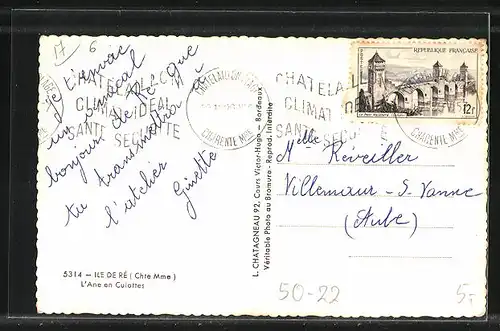 17 6
je t'envoie
un amical
bonjour de Ré que
tu transmettras à
l'atelier
Ginette
CHATELAILLON
CLIMAT IDÉAL
SANTÉ SECURITE
CHARENTE MME
CHATELAILL
CLIMAT
SANTÉ SEC
E
CHARENTE MME
REPUBLIQUE FRANÇAISE
12f
Melle Réveiller
Villemaur-S-Vanne
(Aube)
L. CHATAGNEAU 92, Cours Victor-Hugo - Bordeaux
Véritable Photo au Bromure - Reprod. Interdite
5314 — ILE DE RÉ ( Chte Mme )
L'Ane en Culottes
50-22
5,-